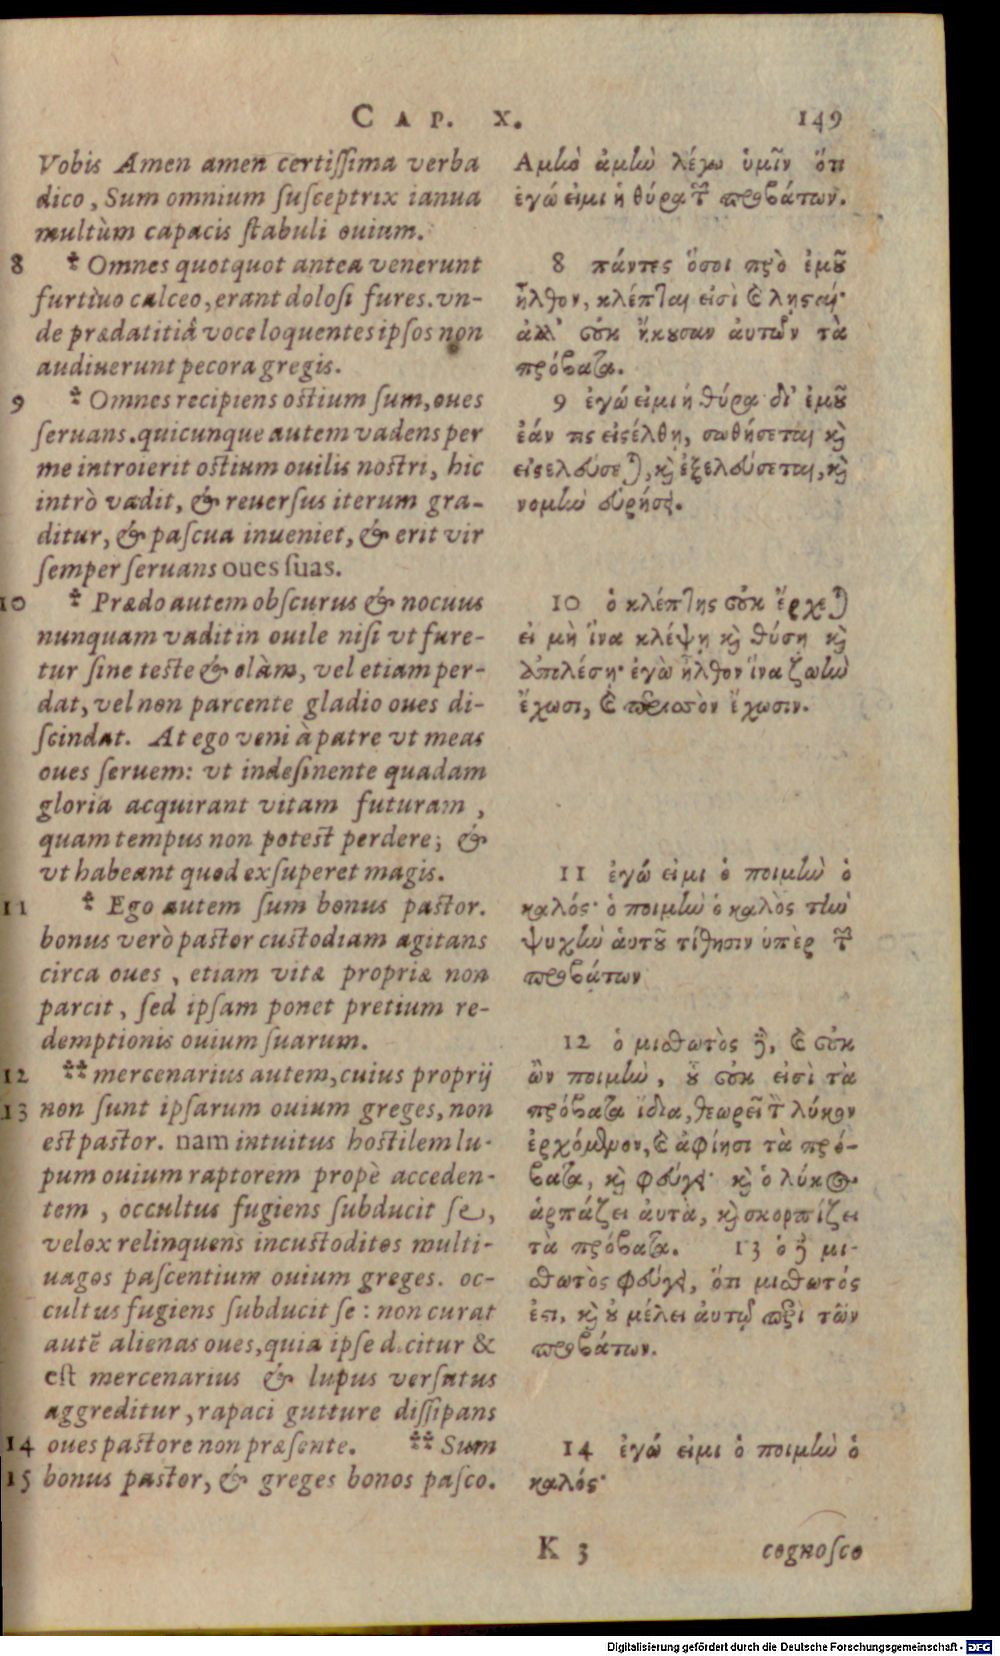 CAP. X. 149
Vobis Amen amen certiſſima verba
dico, Sum omnium ſuſceptrix ianua
multùm capacis ſtabuli ouium.
8 ⁜ Omnes quotquot antea venerunt
furtiuo calceo, erant doloſi fures. vn-
de prædatitiâ voce loquentes ipſos non
audiuerunt pecora gregis.
9 ⁜ Omnes recipiens oſtium ſum, oues
ſeruans. quicunque autem vadens per
me introierit oſtium ouilis noſtri, hic
intrò vadit, & reuerſus iterum gra-
ditur, & paſcua inueniet, & erit vir
ſemper ſeruans oues ſuas.
10 ⁜ Prædo autem obſcurus & nocuus
nunquam vadit in ouile niſi vt fure-
tur ſine teſte & clàm, vel etiam per-
dat, vel non parcente gladio oues di-
ſcindat. At ego veni à patre vt meas
oues ſeruem: vt indeſinente quadam
gloria acquirant vitam futuram,
quam tempus non poteſt perdere; &
vt habeant quod exſuperet magis.
11 ⁜ Ego autem ſum bonus paſtor.
bonus verò paſtor cuſtodiam agitans
circa oues, etiam vitæ propriæ non
parcit, ſed ipſam ponet pretium re-
demptionis ouium ſuarum.
12 ⁜⁜ mercenarius autem, cuius proprij
13 non ſunt ipſarum ouium greges, non
eſt paſtor. nam intuitus hoſtilem lu-
pum ouium raptorem propè acceden-
tem, occultus fugiens ſubducit ſe,
velox relinquens incuſtoditos multi-
uagos paſcentium ouium greges. oc-
cultus fugiens ſubducit ſe: non curat
autẽ alienas oues, quia ipſe dicitur &
eſt mercenarius & lupus verſutus
aggreditur, rapaci gutture diſſipans
14 oues paſtore non præſente. ⁜⁜ Sum
15 bonus paſtor, & greges bonos paſco.
Αμὴν ἀμὴν λέγω ὑμῖν ὅτι
ἐγώ εἰμι ἡ θύρα τῶν προβάτων.
8 πάντες ὅσοι πρὸ ἐμοῦ
ἦλθον, κλέπται εἰσὶ καὶ λῃσταί·
ἀλλ' οὐκ ἤκουσαν αὐτῶν τὰ
πρόβατα.
9 ἐγώ εἰμι ἡ θύρα· δι' ἐμοῦ
ἐάν τις εἰσέλθῃ, σωθήσεται καὶ
εἰσελεύσεται, καὶ ἐξελεύσεται, καὶ
νομὴν εὑρήσει.
10 ὁ κλέπτης οὐκ ἔρχεται
εἰ μὴ ἵνα κλέψῃ καὶ θύσῃ καὶ
ἀπολέσῃ· ἐγὼ ἦλθον ἵνα ζωὴν
ἔχωσι, καὶ περισσὸν ἔχωσιν.
11 ἐγώ εἰμι ὁ ποιμὴν ὁ
καλός· ὁ ποιμὴν ὁ καλὸς τὴν
ψυχὴν αὑτοῦ τίθησιν ὑπὲρ τῶν
προβάτων
12 ὁ μισθωτὸς δὲ, καὶ οὐκ
ὢν ποιμὴν, οὗ οὐκ εἰσὶ τὰ
πρόβατα ἴδια, θεωρεῖ τὸν λύκον
ἐρχόμενον, καὶ ἀφίησι τὰ πρό-
βατα, καὶ φεύγει· καὶ ὁ λύκος
ἁρπάζει αὐτὰ, καὶ σκορπίζει
τὰ πρόβατα. 13 ὁ δὲ μι-
σθωτὸς φεύγει, ὅτι μισθωτός
ἐστι, καὶ οὐ μέλει αὐτῷ περὶ τῶν
προβάτων.
14 ἐγώ εἰμι ὁ ποιμὴν ὁ
καλός·
K 3 cognoſco
Digitalisierung gefördert durch die Deutsche Forschungsgemeinschaft - DFG